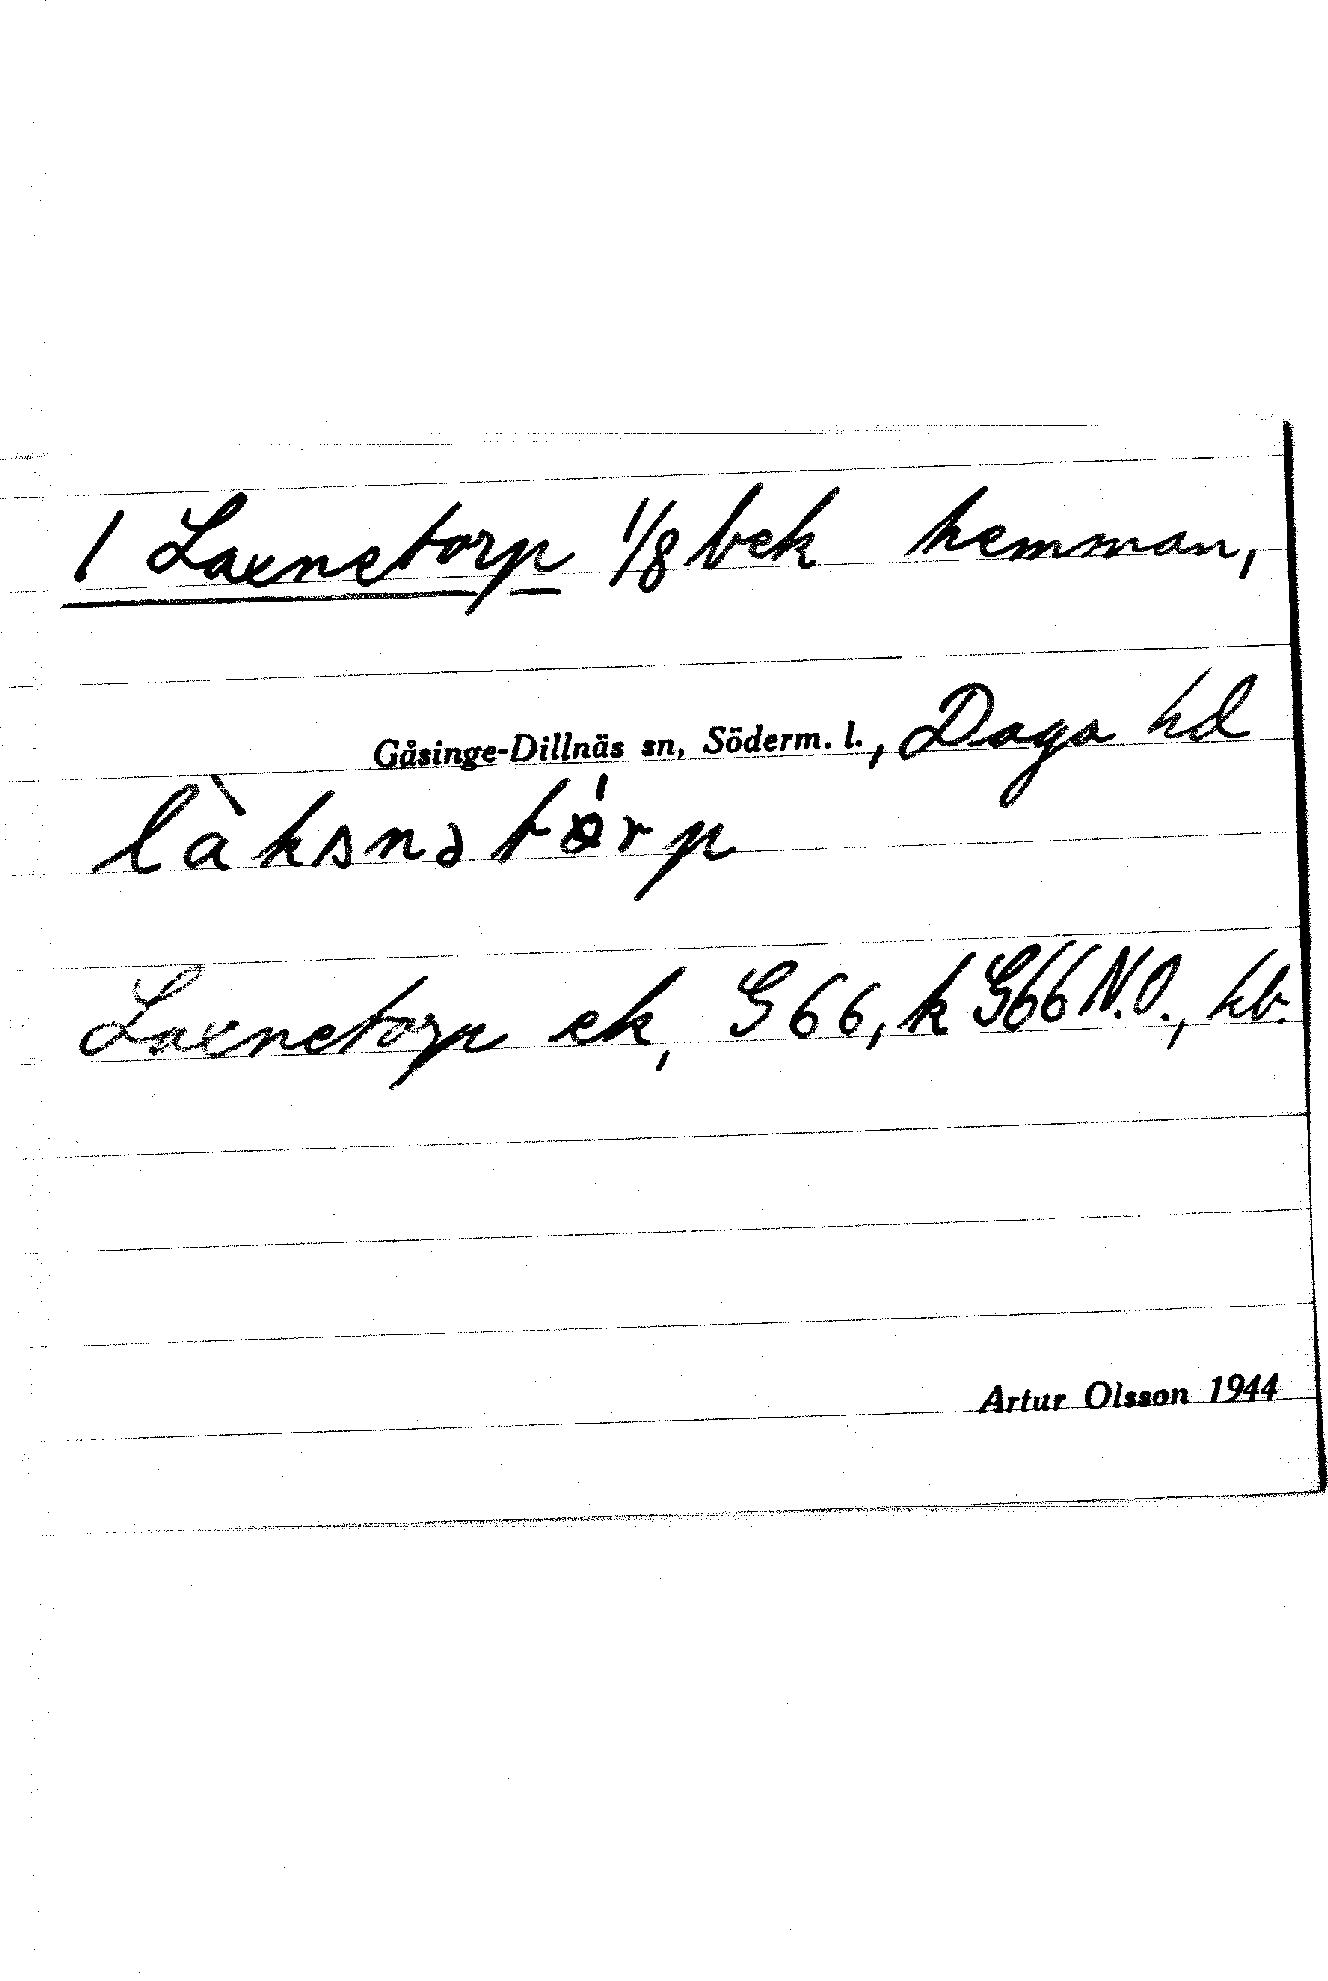 1 Laxnetorp 1/8 bek hemman,
Gåsinge-Dillnäs sn, Söderm. l., Daga hd
làksnətórp
Laxnetorp ek, G66, k G66 N.O., hb.
Artur Olsson 1944